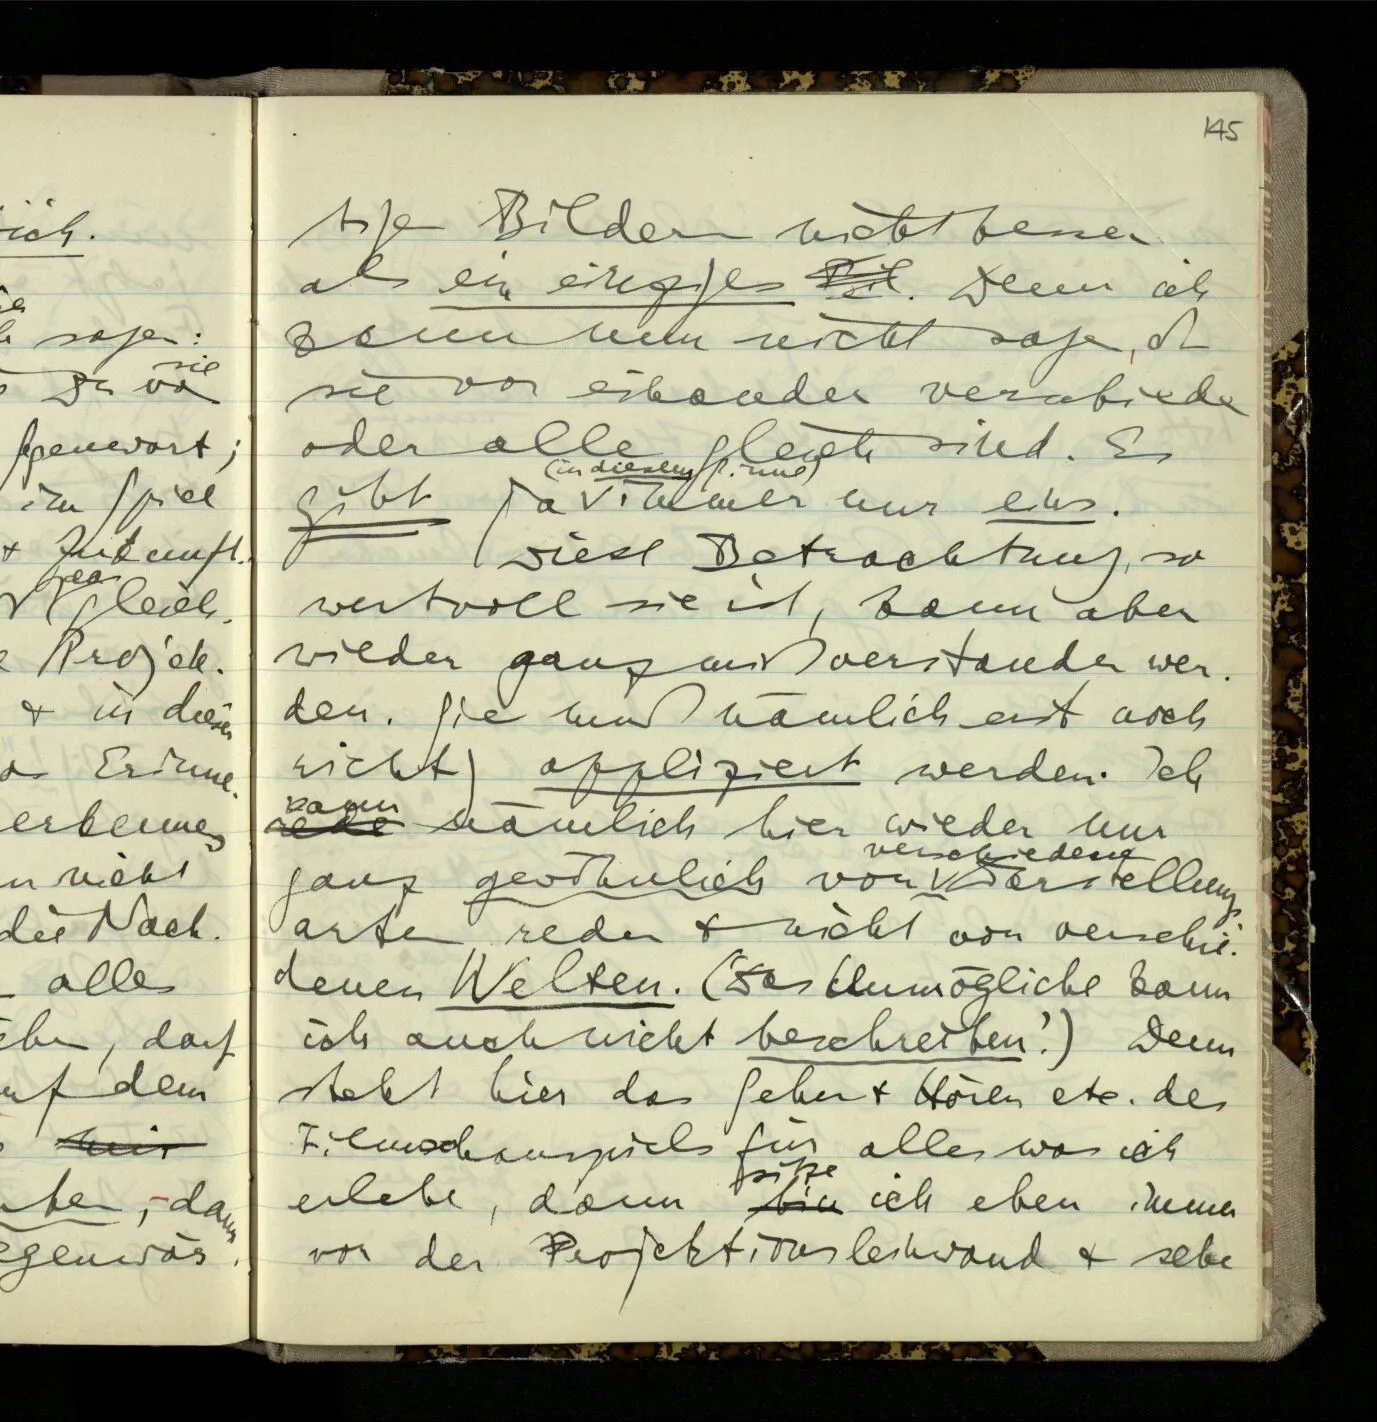 145
ich.
sagen:
sie
genwart;
im Spiel
+ Zukunft.
gleich.
Projek.
+ in diesen
Erinne.
erkennen
nicht
die Nach.
alles
, darf
auf dem
mir
ben, – dann
egenwär.
tigen Bildern nicht besser
als ein einziges Bil. Denn ich
kann nun nicht sagen, ob
sie von einander verschieden
oder alle gleich sind. Es
(in diesem Sinne)
gibt ja immer nur eins.
Diese Betrachtung, so
wertvoll sie ist, kann aber
wieder ganz mißverstanden wer-
den. Sie muß nämlich erst noch
richtig appliziert werden. Ich
kann
rede nämlich hier wieder nur
verschiedene
ganz gewöhnlich von Darstellungs
arten reden + nicht von verschie-
denen Welten. (Das Unmögliche kann
ich auch nicht beschreiben!) Denn
steht hier das Sehen + Hören etc. des
Filmschauspiels für alles was ich
sitze
erlebe, dann bin ich eben immer
vor der Projektionsleinwand + sehe